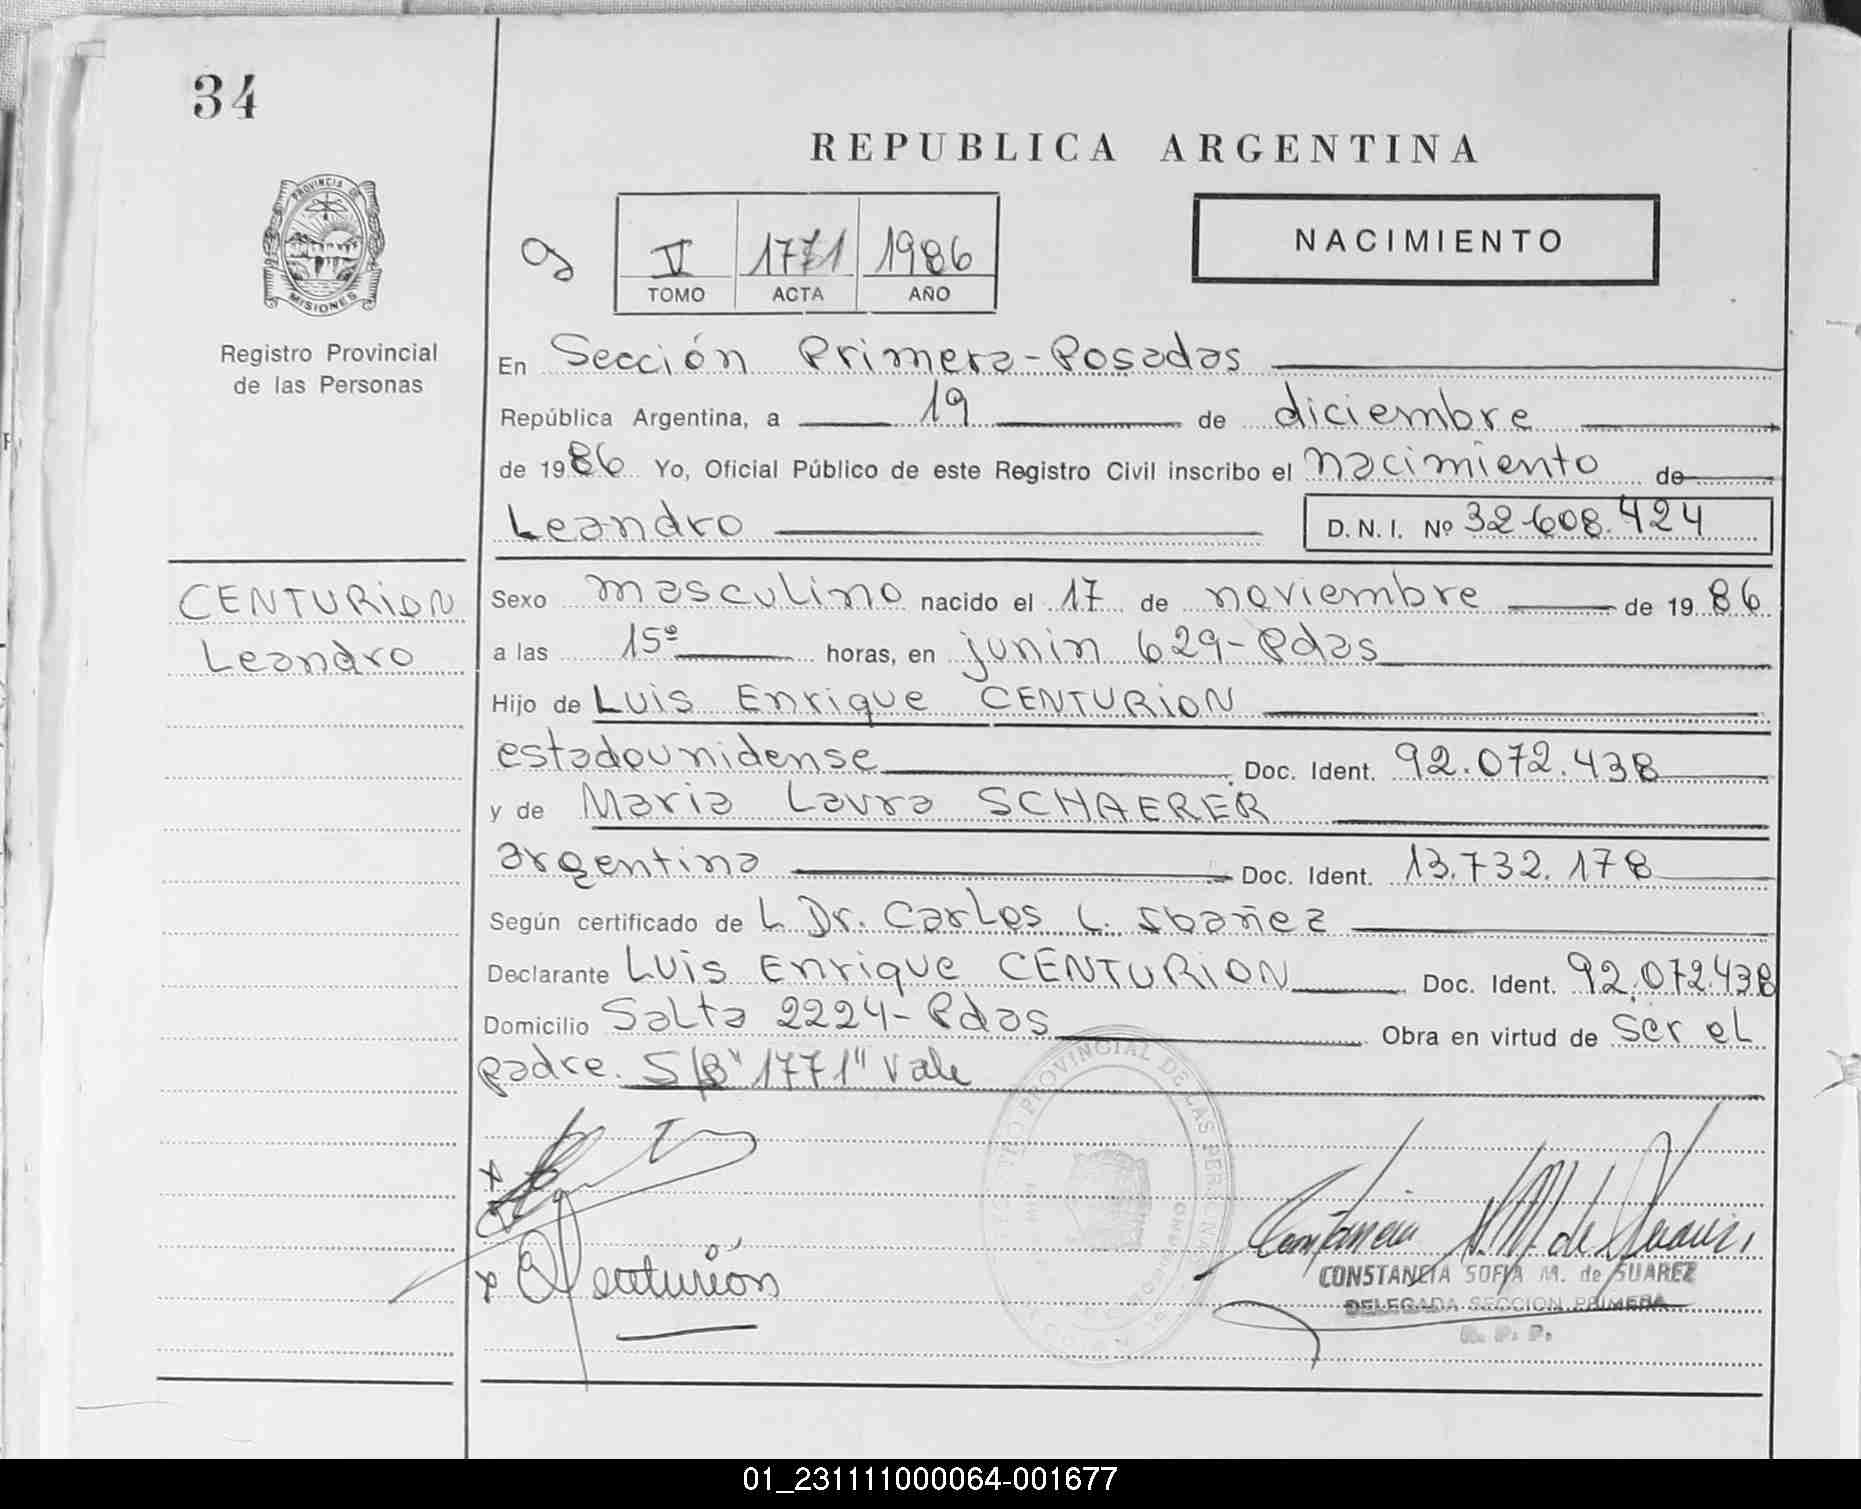 34
REPUBLICA ARGENTINA
PROVINCIA DE
MISIONES
Registro Provincial
de las Personas
9
V 1771 1986
TOMO ACTA AÑO
NACIMIENTO
En Sección Primera-Posadas
República Argentina, a 19 de diciembre
de 1986 Yo, Oficial Público de este Registro Civil inscribo el nacimiento de
Leandro D.N.I. Nº 32.608.424
CENTURION
Leandro
Sexo masculino nacido el 17 de noviembre de 1986
a las 15º horas, en junin 629-Pdas
Hijo de Luis Enrique CENTURION
estadounidense Doc. Ident. 92.072.438
y de Maria Laura SCHAERER
argentina Doc. Ident. 13.732.178
Según certificado de L. Dr. Carlos L. Ibañez
Declarante Luis Enrique CENTURION Doc. Ident. 92.072.438
Domicilio Salta 2224-Pdas Obra en virtud de ser el
padre. S/B "1771" Vale
REGISTRO PROVINCIAL DE LAS PERSONAS
x
x Centurión
Constancia S. M. de Suarez
CONSTANCIA SOFIA M. de SUAREZ
DELEGADA SECCION PRIMERA
R. P. P.
01_231111000064-001677